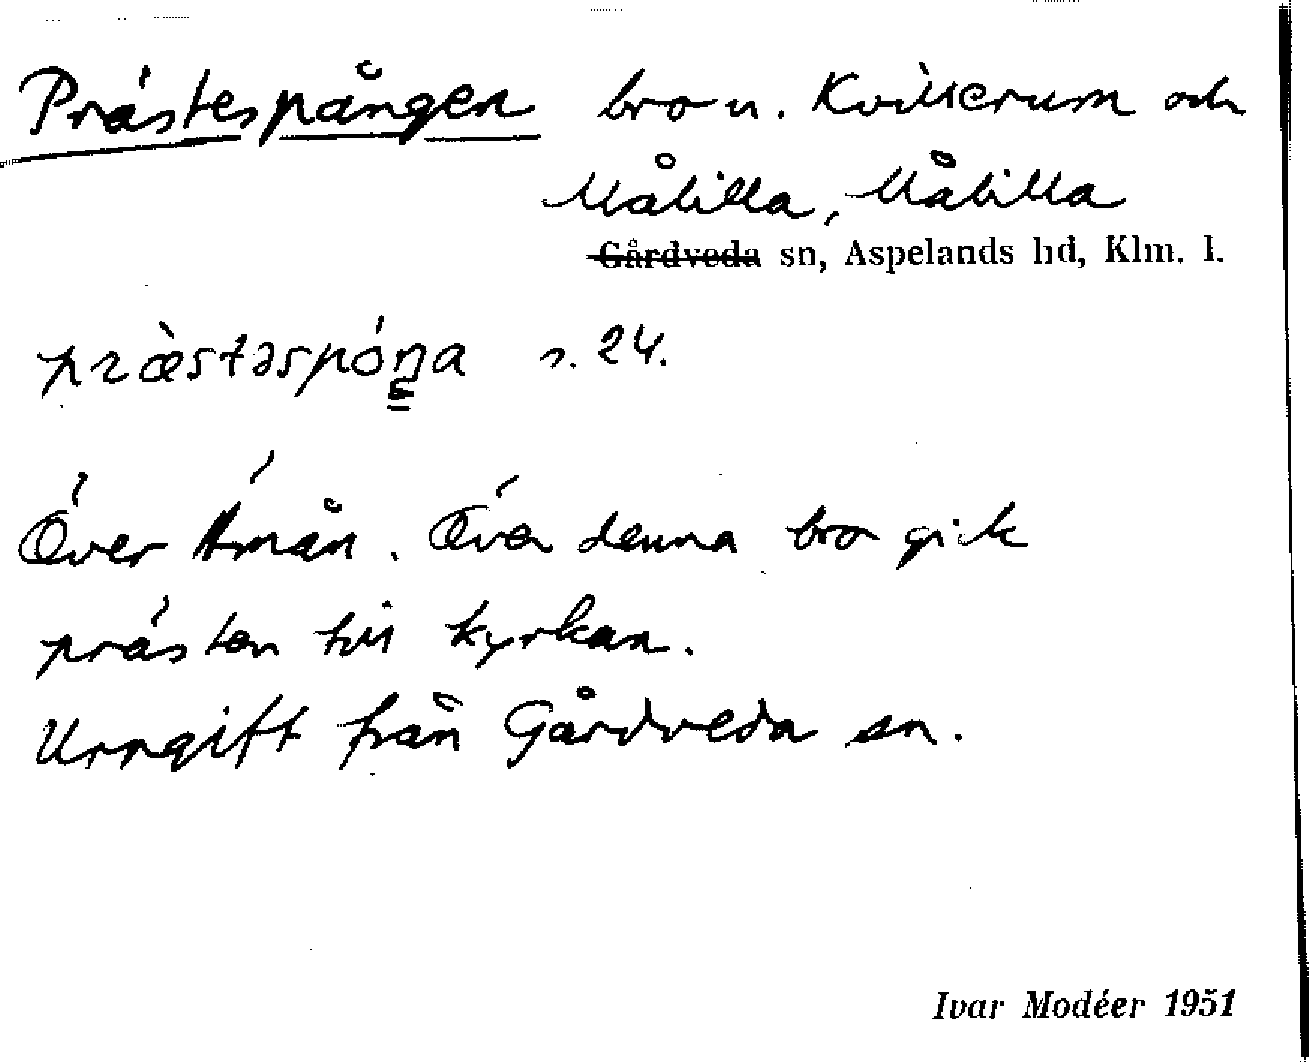 Prästespången bro u. Kvillerum och
Målilla, Målilla
Gårdveda sn, Aspelands hd, Klm. l.
præ̀stəspóŋa s. 24.
Över Åmån. Över denna bro gick
prästen till kyrkan.
Uppgift från Gårdveda sn.
Ivar Modéer 1951